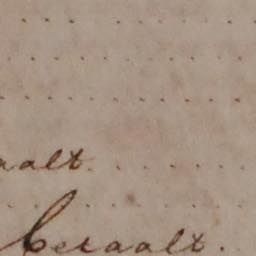 aalt.
Betaalt.